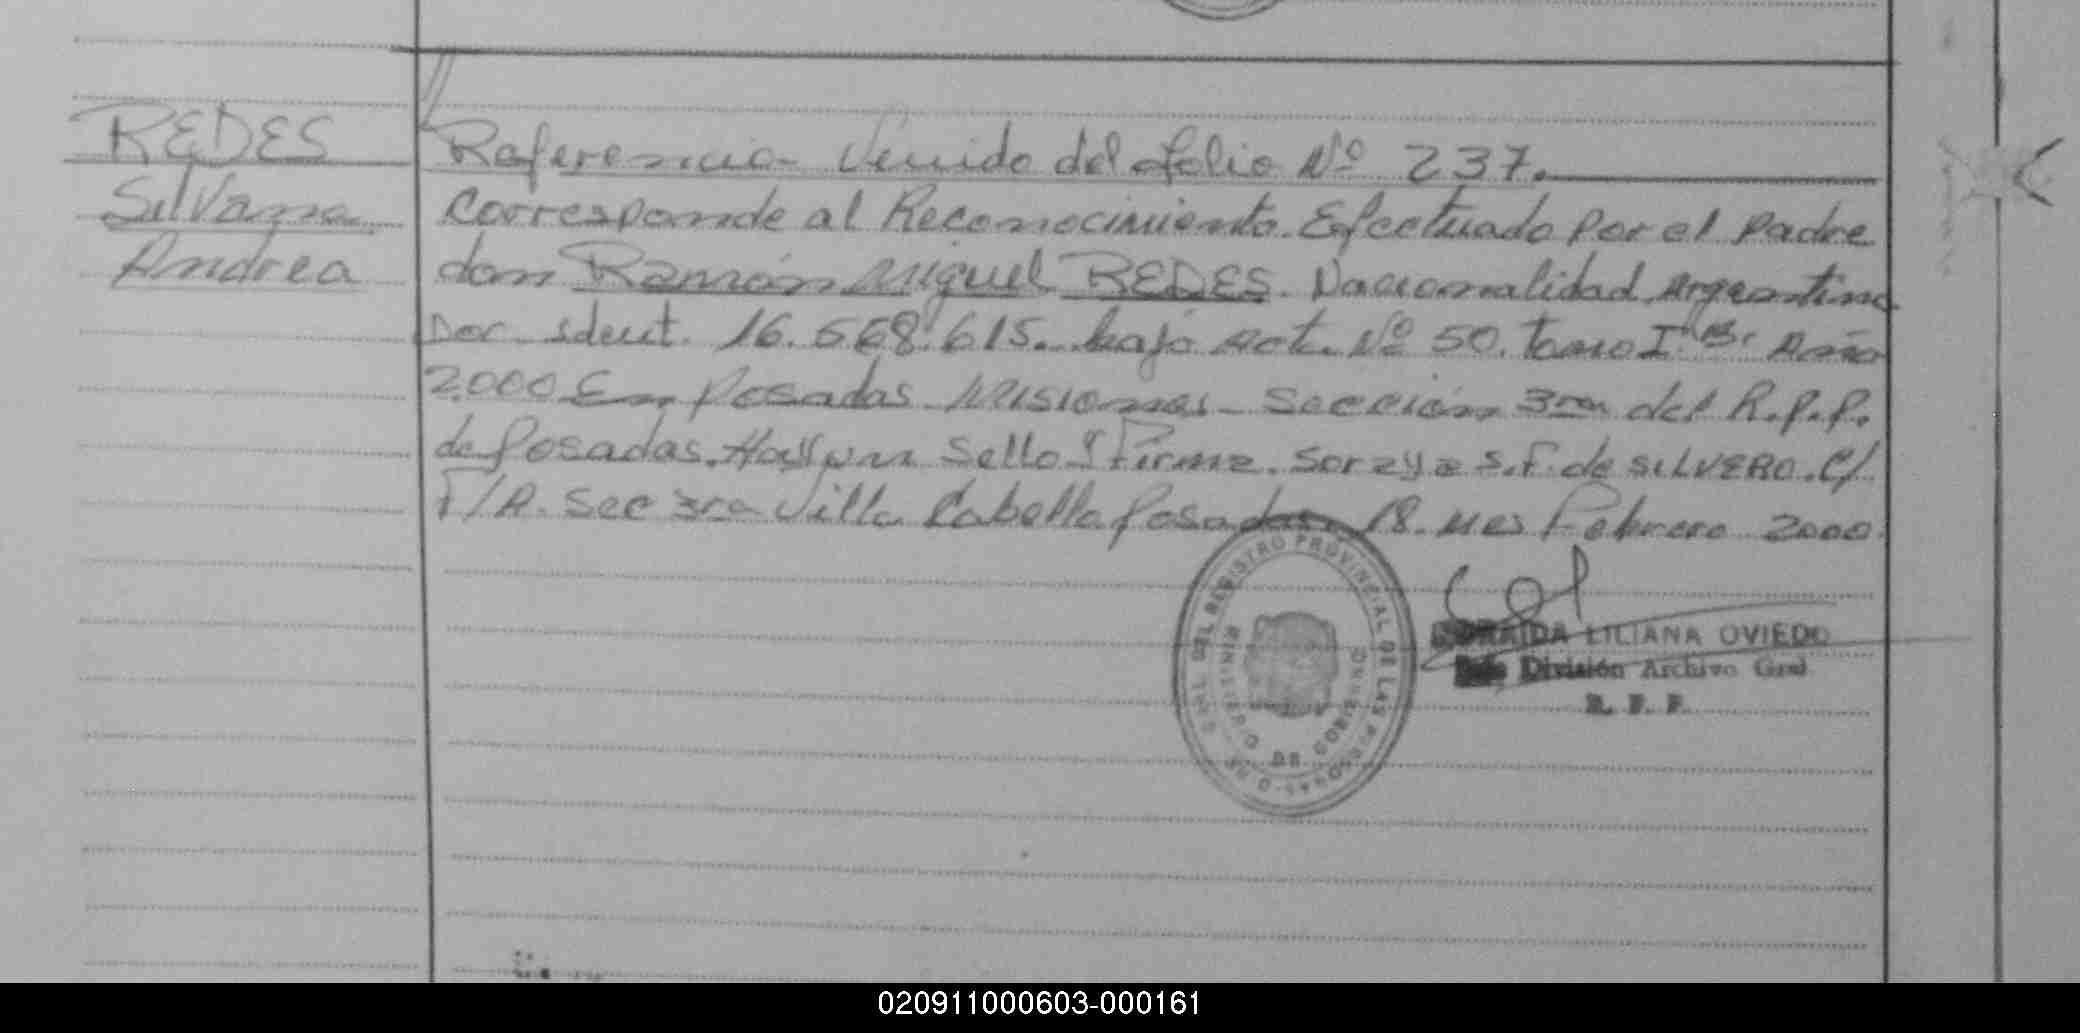 REDES
Silvana
Andrea
Referencia Venido del folio Nº 237.
Corresponde al Reconocimiento Efectuado Por el Padre
don Ramón Miguel REDES. Nacionalidad Argentina
Doc Ident. 16.568.615. bajo Act. Nº 50. Tomo I Año
2000 En Posadas Misiones - Sección 3ra del R.P.P.
de Posadas. Hay un Sello y Firma. S.F. de SILVERO. C/
F/R. Sec 3ra Villa Cabello Posadas, 18. Mes Febrero 2000.
GRAL DEL REGISTRO PROVINCIAL DE LAS PERSONAS
MINISTERIO DE GOBIERNO
LILIANA OVIEDO
División Archivo Gral.
R. P. P.
020911000603-000161